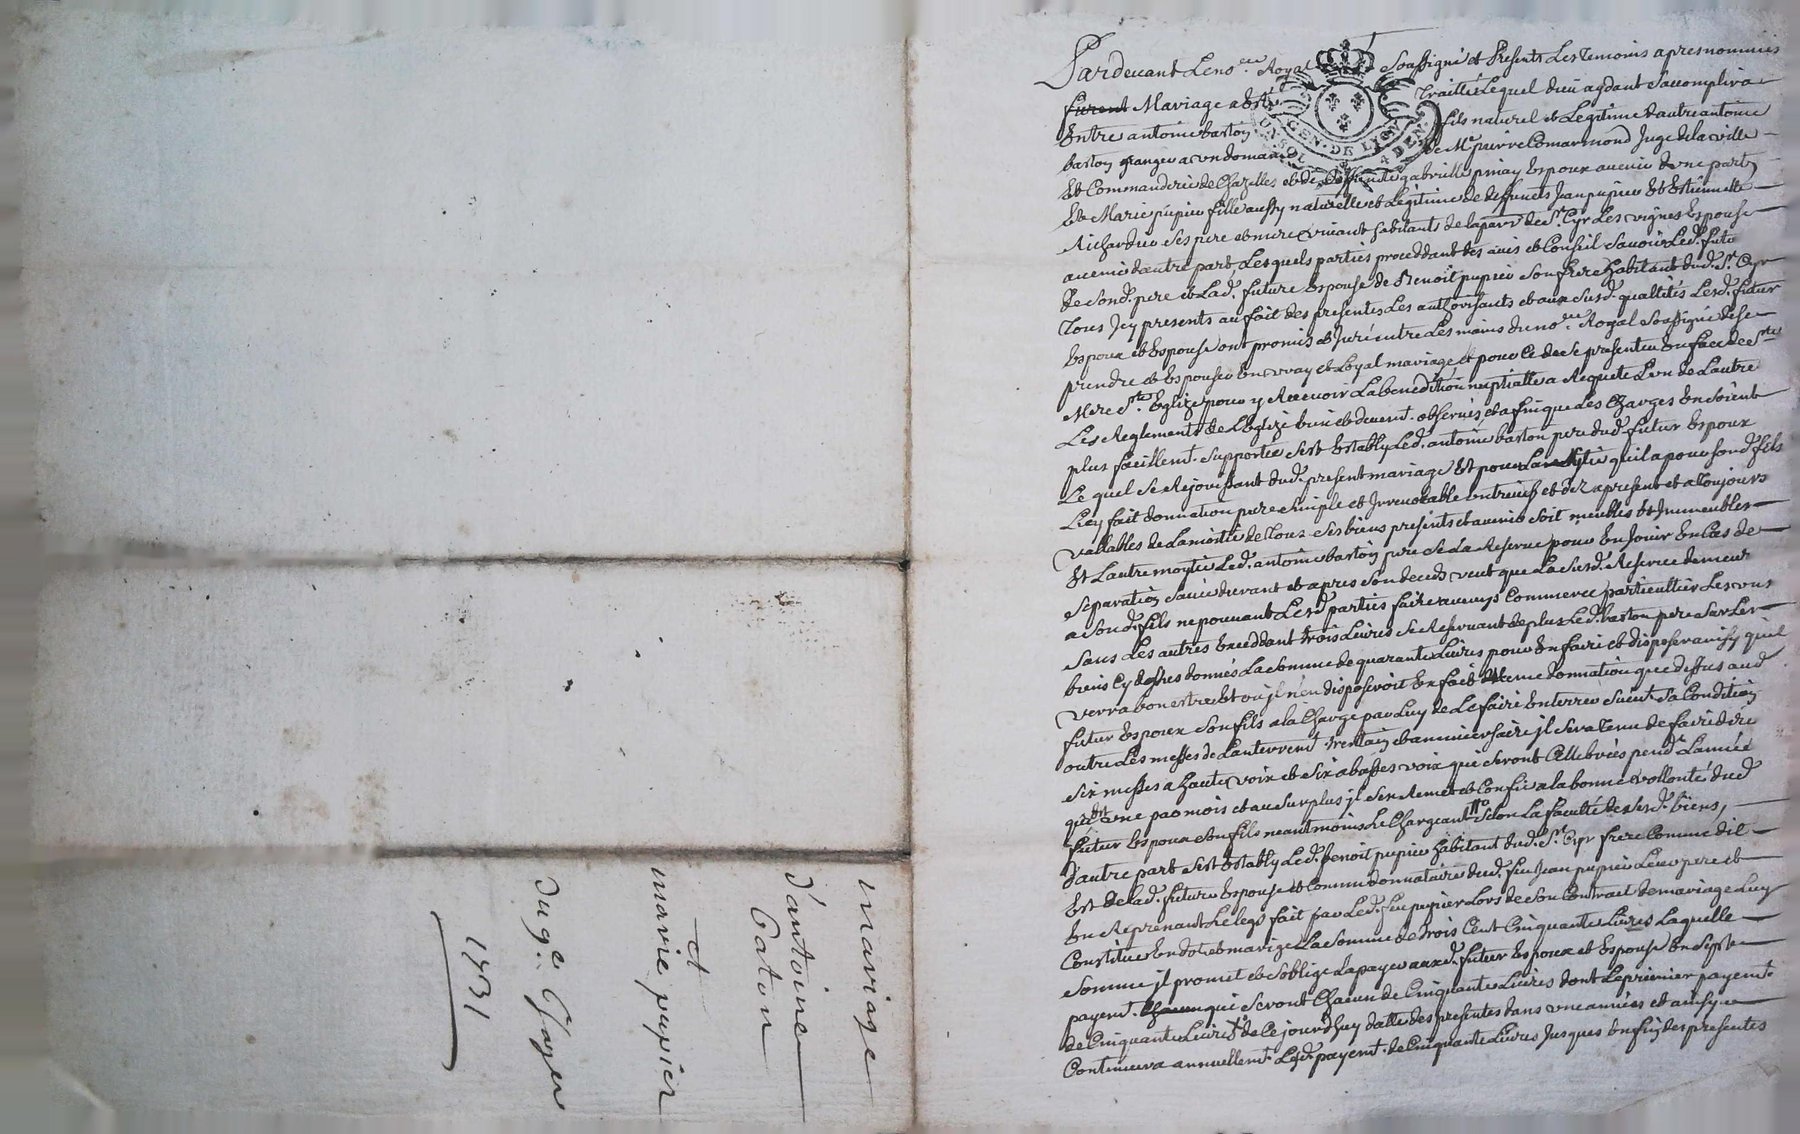 mariage
d'antoine
Baton
et
marie pupier
du 9e Jxger
1731
GEN. DE LYON
4 DEN.
Pardevant Le no.re Royal Soussigné et Presents Les temoins apres nommés
furent Mariage a Esté traitté Lequel dieu aydant Saccomplira
Entre antoine baston fils naturel et Legitime d'autre antoine
baston granger a un domaine de Me pierre Comarmond Juge de la ville
Et Commanderie de Chazelles et de deffunte gabrielle pinay Espoux avenir d'une part
Et Marie pupier fille aussy naturelle et Legitime de deffunts Jean pupier Et Estiennette
Richardier ses pere et mere vivant habitants de la parr. de St. Cyr Les vignes Espouse
avenir d'autre part, Lesquels parties proceddant des avis et Conseil Savoir Led. futur
de Sond. pere et Lad. future Espouse de Benoit pupier Son frere habitant dud. St. Cyr
tous Jcy presents au fait des presentes Les authorisants et aux Susd. quallités Lesd. futur
Espoux et Espouse ont promis et Juré entre Les mains du no.re Royal Soussigné de Se
prendre et Espouser En vray et Loyal mariage et pour Ce de Se presenter En face de Ste
Mere Ste. Eglize pour y Recevoir La benediction nuptialle a Requete L'un de Lautre
Les Reglements de L'Eglize bien et deuemt. observés et afin que Les Charges En Soient
plus facillemt. Supportée S'est Estably Led. antoine baston pere dud. futur Espoux
Le quel Se Rejouissant dud. present mariage Et pour Lamitié quil a pour Sond. fils
Luy fait donnation pure Simple et Jrrevocable entre vifs et dez a present et a toujours
vallables de La moitié de tous Ses biens presents et avenir Soit meubles Et Jmmeubles
Et Lautre moytié Led. antoine baston pere Se La Reserve pour En Jouir En Cas de
Separation Sa vie durant et apres Son deceds veut que La Susd. Reserve demeure
a Sond. fils ne pouvant Lesd. parties faire aucuns Commerce particullier Les uns
Sans Les autres Exceddant trois Livres Se Reservant de plus Led. baston pere Sur Les
biens Cy dessus donnés La Somme de quarante Livres pour En faire et disposer ainsy quil
verra bon estre Et ou jl n'en disposeroit En fait meme donnation que dessus aud.
futur Espoux Son fils a la Charge par Luy de Le faire Enterrer Suivt. Sa Condition
outre Les messes de L'anterremt. trentain et anniversaire jl Sera tenu de faire dire
Six messes a haute voix et Six a basses voix qui Seront Cellebrées pendt. L'année
de une par mois et au Surplus jl S'en Remet et Confie a la bonne vollonté dud.
futur Espoux Son fils neantmoins Le Chargeant Selon La faculté de Sesd. biens,
D'autre part S'est Estably Led. Benoit pupier habitant dud. St. Cyr frere Comme dit
Est de Lad. future Espouse et Comme donnataire dud. feu Jean pupier Leur pere et
En Reprenant Le legs fait par Led. feu pupier Lors de Son Contract de mariage Luy
Constitue En dot et mariage La Somme de trois Cent Cinquante Livres Laquelle
Somme jl promet et Soblige La payer auxd. futur Espoux et Espouse En Sept
payemt. qui Seront Chacun de Cinquante Livres dont Le premier payemt.
de Cinquante Livres de Ce jourd'huy datte des presentes dans une année et ainsy
Continuera annuellemt. Led. payemt. de Cinquante Livres Jusques En fin des presentes